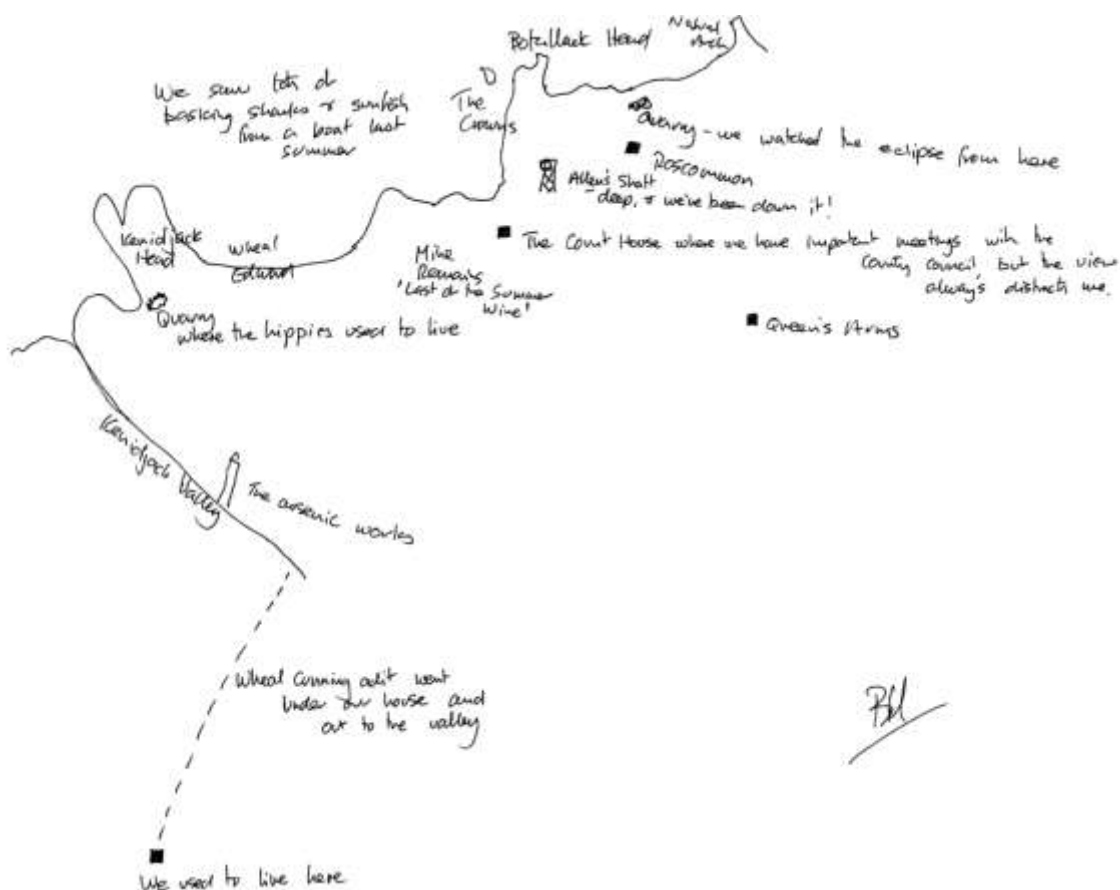 Natural
Arch
Botallack Head
We saw lots of
basking sharks & sunfish
from a boat last
summer
The
Crowns
Quarry - we watched the eclipse from here
Roscommon
Allen's Shaft
- deep, & we've been down it!
Kenidjack
Head
Wheal
Edward
Mine
Remains
'Last of the Summer
Wine'
The Count House where we have important meetings with the
County Council, but the view
always distracts me.
Quarry
where the hippies used to live
Queen's Arms
Kenidjack Valley
The arsenic works
Wheal Cunning adit went
under our house and
out to the valley
We used to live here